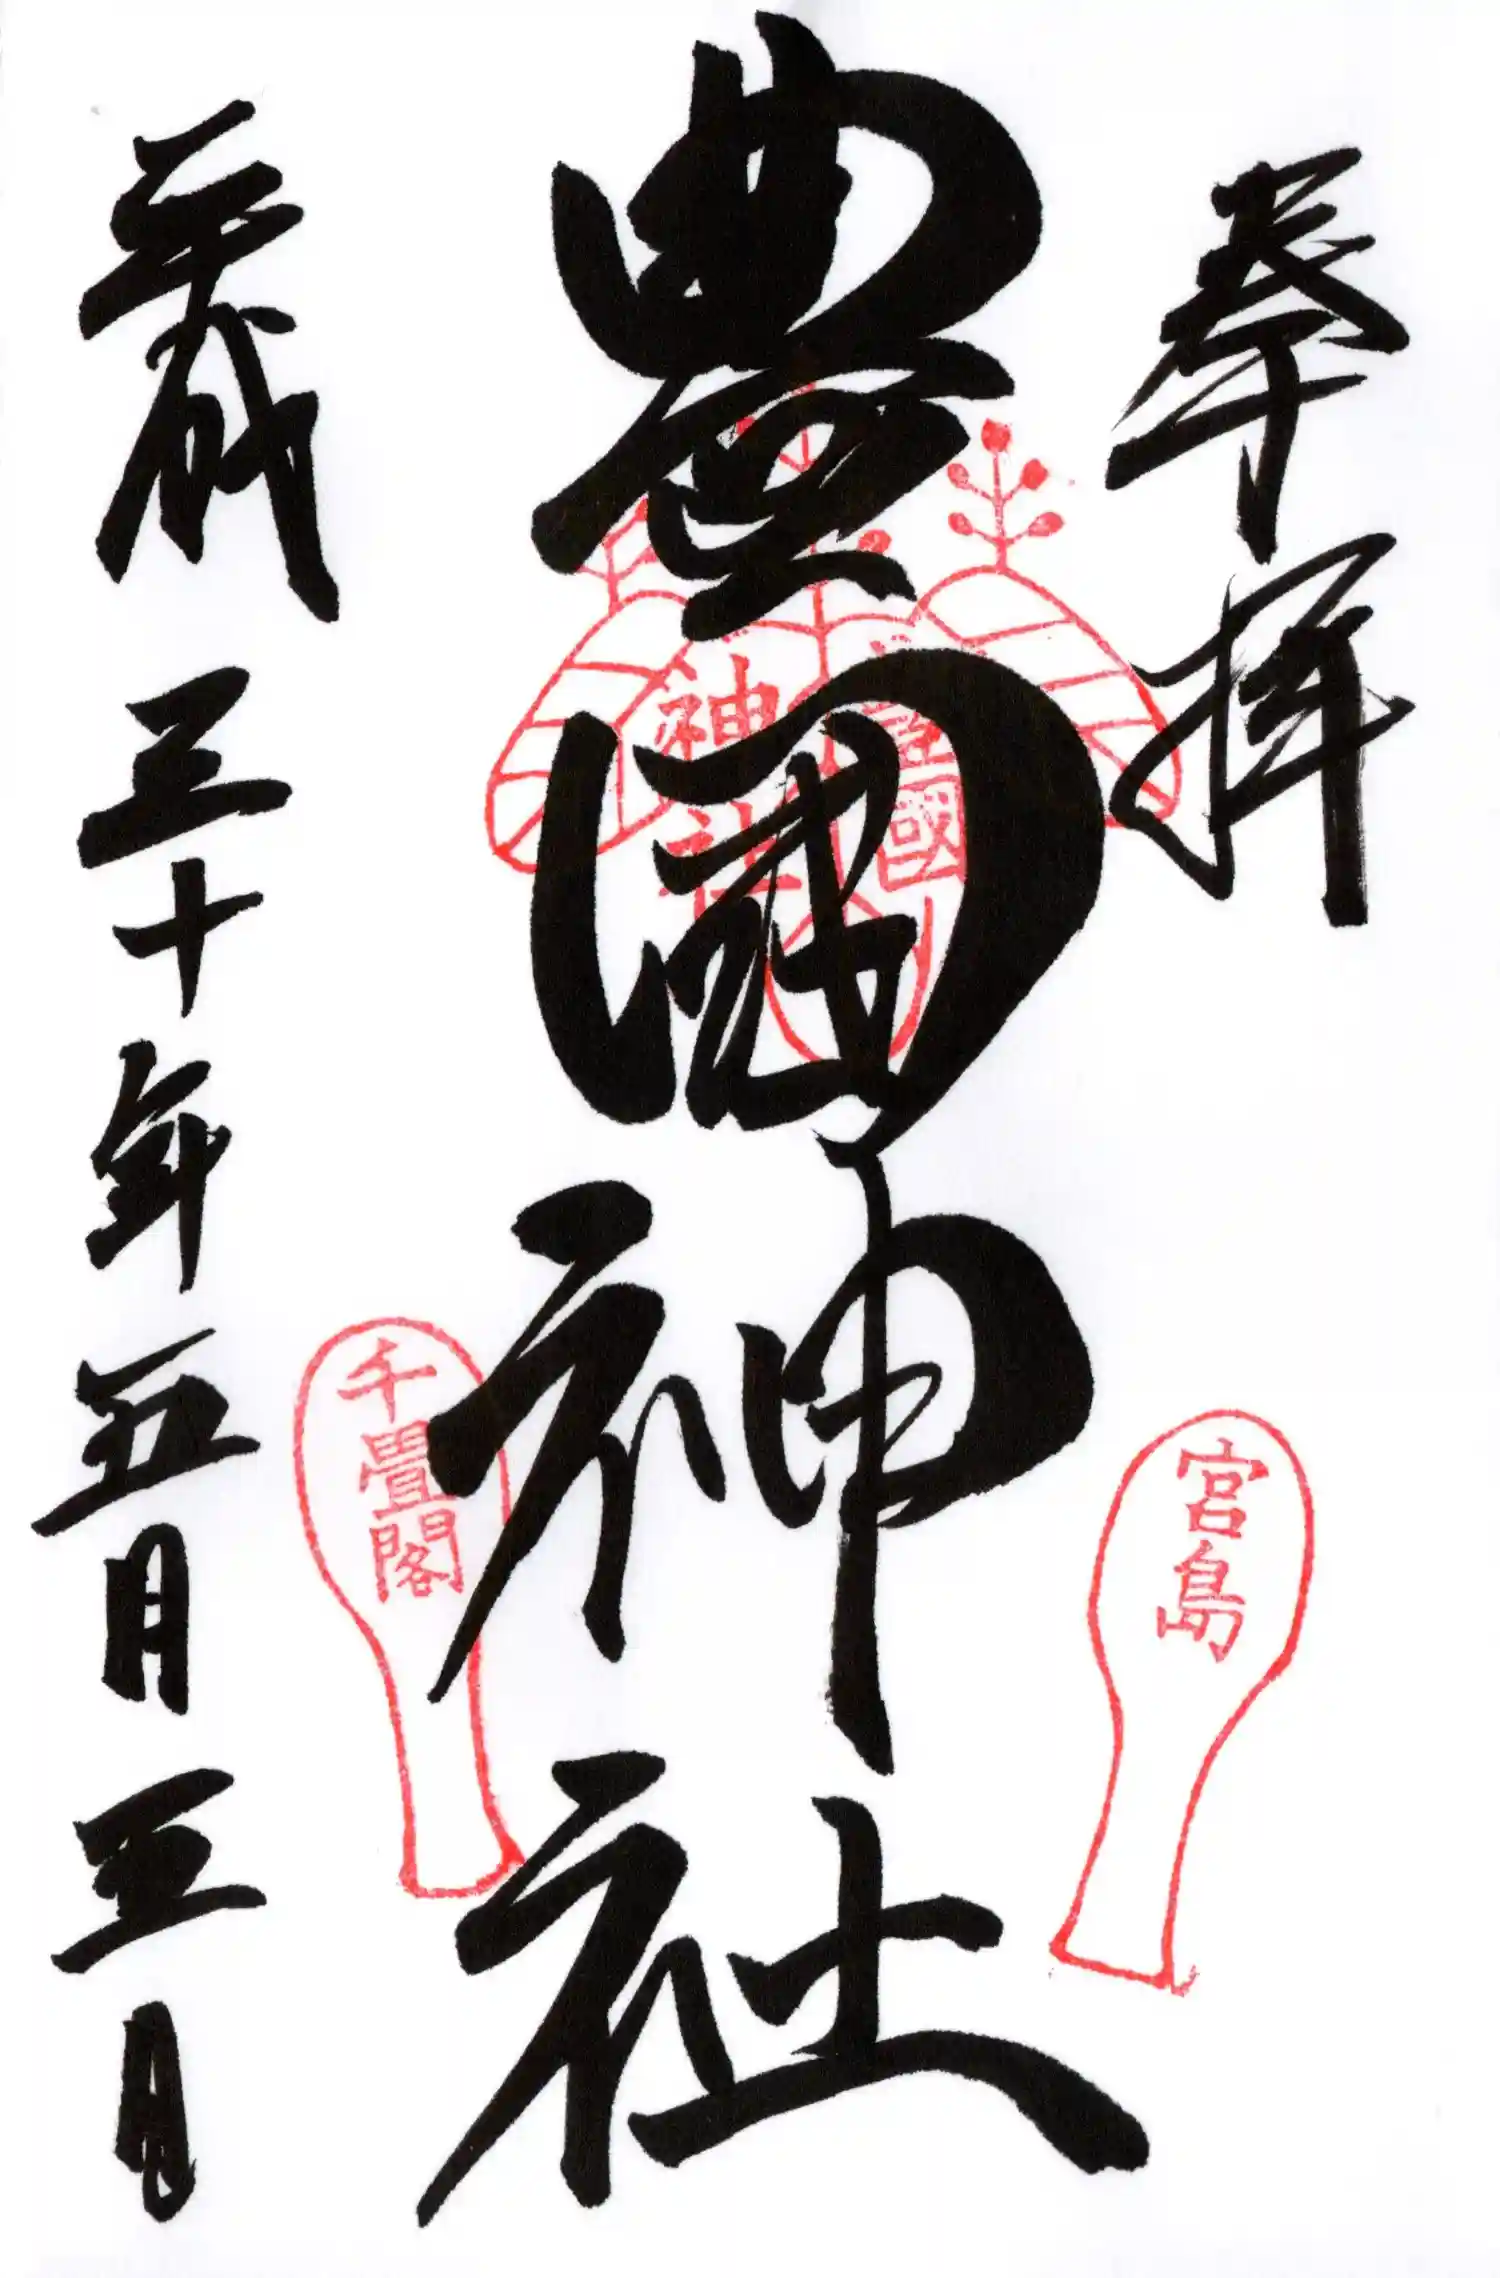 奉拝
豊國神社
平成三十年五月三日
豊國
神社
宮島
千畳閣